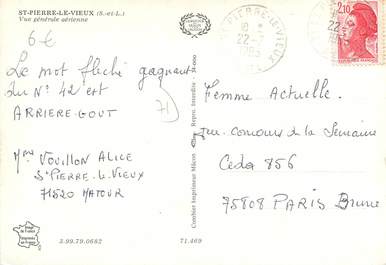 ST-PIERRE-LE-VIEUX (S.-et-L.)
Vue générale aérienne
6€
Le mot fléché gagnant
du N° 42 est
ARRIERE-GOUT
71
Mme VOUILLON ALICE
St PIERRE. L. VIEUX
71520 MATOUR
3.99.79.0682
71.469
Combier Imprimeur Mâcon
Repro. Interdite
PIERRE-LE-VIEUX
22-
2,10
Femme Actuelle.
jeu-concours de la Semaine
Cedex 856
75808 PARIS Brune